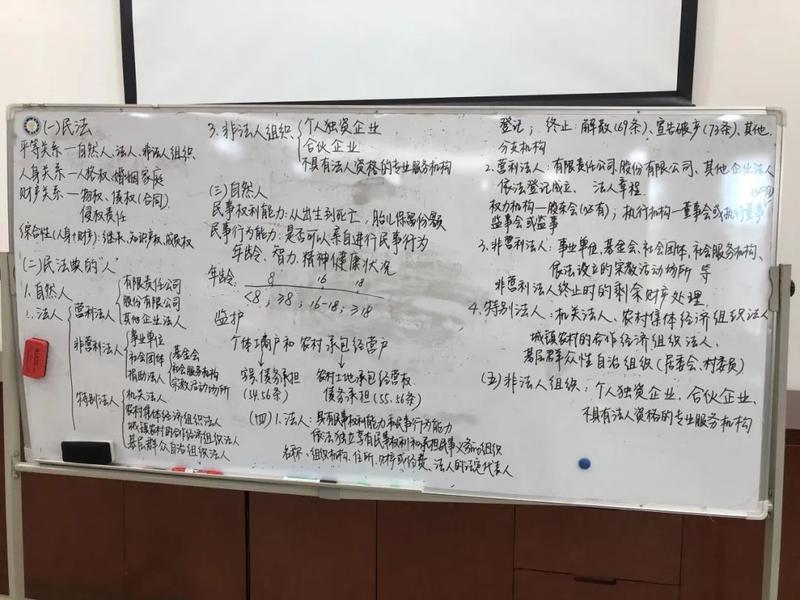 (一)民法
平等关系—自然人、法人、非法人组织
人身关系—人格权、婚姻家庭
财产关系—物权、债权(合同)
侵权责任
综合性(人身+财产):继承、知识产权、成员权
(二)民法典的"人"
1.自然人
2.法人
营利法人
有限责任公司
股份有限公司
其他企业法人
非营利法人
事业单位
社会团体
捐助法人
基金会
社会服务机构
宗教活动场所
特别法人
机关法人
农村集体经济组织法人
城镇农村的合作经济组织法人
基层群众自治组织法人
3.非法人组织
个人独资企业
合伙企业
不具有法人资格的专业服务机构
(三)自然人
民事权利能力:从出生到死亡,胎儿保留份额
民事行为能力:是否可以亲自进行民事行为
年龄、智力、精神健康状况
年龄: 8 16 18
<8,≥8,16-18,≥18
监护
个体工商户和农村承包经营户
字号、债务承担 农村土地承包经营权、
(54.56条) 债务承担(55.56条)
(四)1.法人:具有民事权利能力和民事行为能力
依法独立享有民事权利和承担民事义务的组织
名称、组织机构、住所、财产或经费、法人的法定代表人
登记;终止:解散(69条)、宣告破产(73条)、其他
分支机构
2.营利法人:有限责任公司、股份有限公司、其他企业法人
依法登记成立、法人章程
权力机构—股东会(必有);执行机构—董事会或执行董事
监事会或监事
3.非营利法人:事业单位、基金会、社会团体、社会服务机构、
依法设立的宗教活动场所等
非营利法人终止时的剩余财产处理
4.特别法人:机关法人、农村集体经济组织法人
城镇农村的合作经济组织法人、
基层群众性自治组织(居委会、村委员)
(五)非法人组织:个人独资企业,合伙企业、
不具有法人资格的专业服务机构